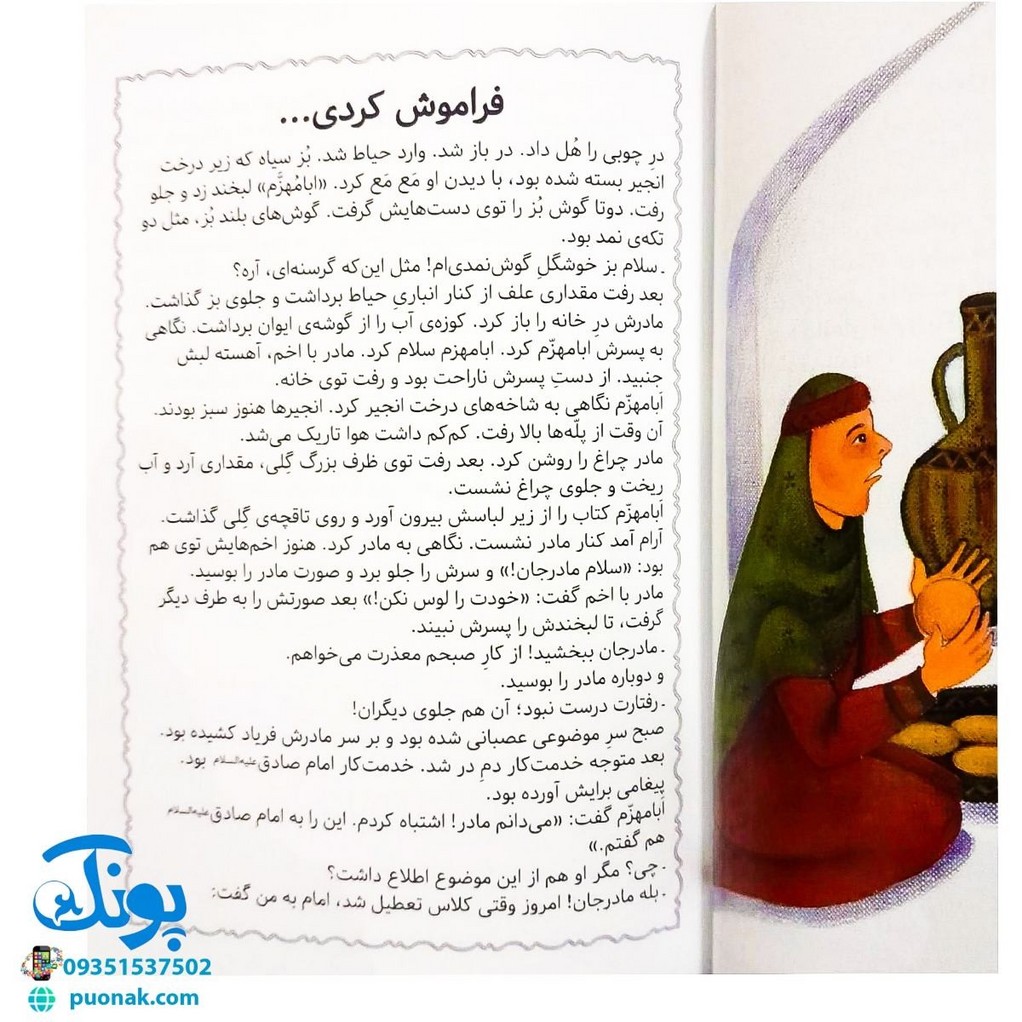 فراموش کردی...
درِ چوبی را هُل داد. در باز شد. وارد حیاط شد. بُز سیاه که زیر درخت
انجیر بسته شده بود، با دیدن او مَع مَع کرد. «ابامُهزَّم» لبخند زد و جلو
رفت. دوتا گوش بُز را توی دست‌هایش گرفت. گوش‌های بلند بُز، مثل دو
تکه‌ی نمد بود.
ـ سلام بز خوشگلِ گوش‌نمدی‌ام! مثل این‌که گرسنه‌ای، آره؟
بعد رفت مقداری علف از کنار انباریِ حیاط برداشت و جلوی بز گذاشت.
مادرش درِ خانه را باز کرد. کوزه‌ی آب را از گوشه‌ی ایوان برداشت. نگاهی
به پسرش ابامهزّم کرد. ابامهزم سلام کرد. مادر با اخم، آهسته لبش
جنبید. از دستِ پسرش ناراحت بود و رفت توی خانه.
اَبامهزّم نگاهی به شاخه‌های درخت انجیر کرد. انجیرها هنوز سبز بودند.
آن وقت از پلّه‌ها بالا رفت. کم‌کم داشت هوا تاریک می‌شد.
مادر چراغ را روشن کرد. بعد رفت توی ظرف بزرگ گِلی، مقداری آرد و آب
ریخت و جلوی چراغ نشست.
اَبامهزّم کتاب را از زیر لباسش بیرون آورد و روی تاقچه‌ی گِلی گذاشت.
آرام آمد کنار مادر نشست. نگاهی به مادر کرد. هنوز اخم‌هایش توی هم
بود: «سلام مادرجان!» و سرش را جلو برد و صورت مادر را بوسید.
مادر با اخم گفت: «خودت را لوس نکن!» بعد صورتش را به طرف دیگر
گرفت، تا لبخندش را پسرش نبیند.
ـ مادرجان ببخشید! از کارِ صبحم معذرت می‌خواهم.
و دوباره مادر را بوسید.
ـ رفتارت درست نبود؛ آن هم جلوی دیگران!
صبح سرِ موضوعی عصبانی شده بود و بر سر مادرش فریاد کشیده بود.
بعد متوجه خدمت‌کار دمِ در شد. خدمت‌کار امام صادق علیه‌السلام بود.
پیغامی برایش آورده بود.
اَبامهزّم گفت: «می‌دانم مادر! اشتباه کردم. این را به امام صادق علیه‌السلام
هم گفتم.»
ـ چی؟ مگر او هم از این موضوع اطلاع داشت؟
ـ بله مادرجان! امروز وقتی کلاس تعطیل شد، امام به من گفت:
پونک
09351537502
puonak.com